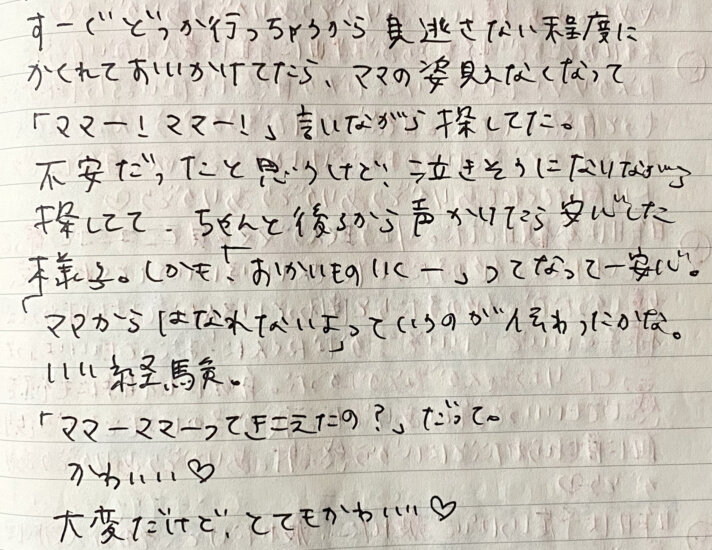 すーぐどっか行っちゃうから見逃さない程度に
かくれておいかけてたら、ママの姿見えなくなって
「ママー！ママー！」言いながら探してた。
不安だったと思うけど、泣きそうになりながら
探してて、ちゃんと後ろから声かけたら安心した
様子。しかも「おかいものいくー」ってなって一安心。
「ママからはなれないよ」っていうのが伝わったかな。
いい経験。
「ママーママーってきこえたの？」だって。
かわいい♡
大変だけど、とてもかわいい♡